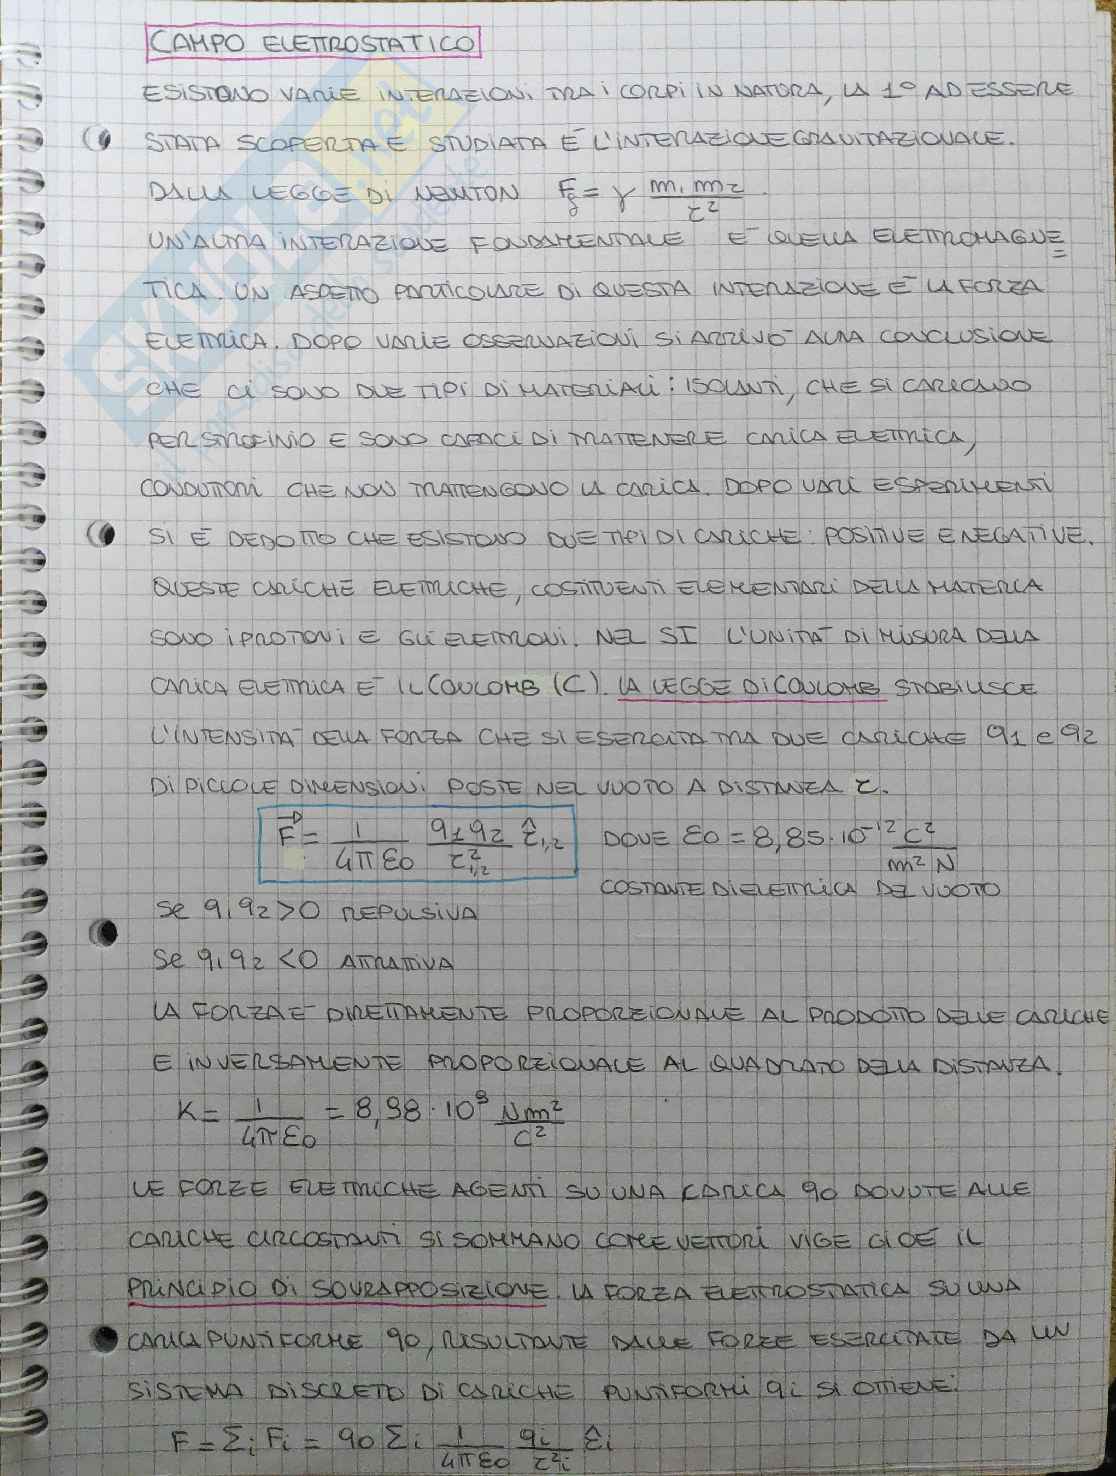 CAMPO ELETTROSTATICO
ESISTONO VARIE INTERAZIONI TRA I CORPI IN NATURA, LA 1° AD ESSERE
STATA SCOPERTA E STUDIATA È L'INTERAZIONE GRAVITAZIONALE.
DALLA LEGGE DI NEWTON Fg = γ m1 m2 / r²
UN'ALTRA INTERAZIONE FONDAMENTALE È QUELLA ELETTROMAGNE
TICA. UN ASPETTO PARTICOLARE DI QUESTA INTERAZIONE È LA FORZA
ELETTRICA. DOPO VARIE OSSERVAZIONI SI ARRIVÒ ALLA CONCLUSIONE
CHE CI SONO DUE TIPI DI MATERIALI: ISOLANTI, CHE SI CARICANO
PER STROFINIO E SONO CAPACI DI TRATTENERE CARICA ELETTRICA,
CONDUTTORI CHE NON TRATTENGONO LA CARICA. DOPO VARI ESPERIMENTI
SI È DEDOTTO CHE ESISTONO DUE TIPI DI CARICHE: POSITIVE E NEGATIVE.
QUESTE CARICHE ELETTRICHE, COSTITUENTI ELEMENTARI DELLA MATERIA
SONO I PROTONI E GLI ELETTRONI. NEL SI L'UNITÀ DI MISURA DELLA
CARICA ELETTRICA È IL COULOMB (C). LA LEGGE DI COULOMB STABILISCE
L'INTENSITÀ DELLA FORZA CHE SI ESERCITA TRA DUE CARICHE q1 e q2
DI PICCOLE DIMENSIONI POSTE NEL VUOTO A DISTANZA r.
F⃗ = 1 / 4πε0 q1q2 / r²1,2 r̂1,2 DOVE ε0 = 8,85·10⁻¹² C² / m² N
COSTANTE DIELETTRICA DEL VUOTO
Se q1q2 > 0 REPULSIVA
Se q1q2 < 0 ATTRATIVA
LA FORZA È DIRETTAMENTE PROPORZIONALE AL PRODOTTO DELLE CARICHE
E INVERSAMENTE PROPORZIONALE AL QUADRATO DELLA DISTANZA.
K = 1 / 4πε0 = 8,98·10⁹ Nm² / C²
LE FORZE ELETTRICHE AGENTI SU UNA CARICA q0 DOVUTE ALLE
CARICHE CIRCOSTANTI SI SOMMANO COME VETTORI VIGE CIOÈ IL
PRINCIPIO DI SOVRAPPOSIZIONE. LA FORZA ELETTROSTATICA SU UNA
CARICA PUNTIFORME q0, RISULTANTE DALLE FORZE ESERCITATE DA UN
SISTEMA DISCRETO DI CARICHE PUNTIFORMI qi SI OTTIENE:
F = Σi Fi = q0 Σi 1 / 4πε0 qi / r²i r̂i
SKUOLA.net